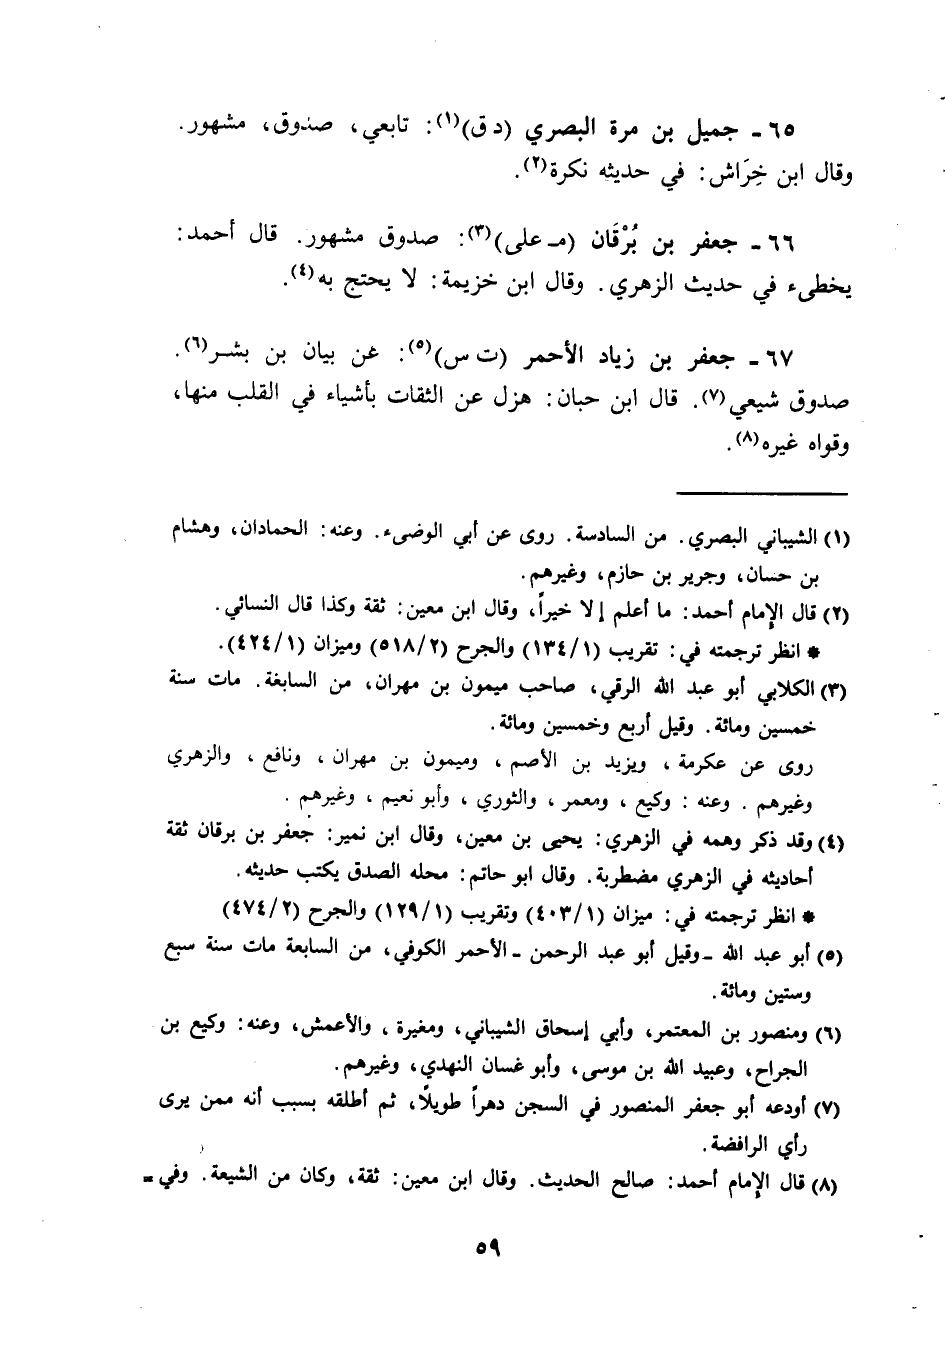 ٦٥ ـ جميل بن مرة البصري (د ق)(١): تابعي، صدوق، مشهور.
وقال ابن خِرَاش: في حديثه نكرة(٢).
٦٦ ـ جعفر بن بُرْقَان (مـ على)(٣): صدوق مشهور. قال أحمد:
يخطىء في حديث الزهري. وقال ابن خزيمة: لا يحتج به(٤).
٦٧ ـ جعفر بن زياد الأحمر (ت س)(٥): عن بيان بن بشر(٦).
صدوق شيعي(٧). قال ابن حبان: هزل عن الثقات بأشياء في القلب منها،
وقواه غيره(٨).
(١) الشيباني البصري. من السادسة. روى عن أبي الوضىء. وعنه: الحمادان، وهشام
بن حسان، وجرير بن حازم، وغيرهم.
(٢) قال الإمام أحمد: ما أعلم إلا خيراً، وقال ابن معين: ثقة وكذا قال النسائي.
* انظر ترجمته في: تقريب (١٣٤/١) والجرح (٥١٨/٢) وميزان (٤٢٤/١).
(٣) الكلابي أبو عبد الله الرقي، صاحب ميمون بن مهران، من السابغة. مات سنة
خمسين ومائة. وقيل أربع وخمسين ومائة.
روى عن عكرمة ، ويزيد بن الأصم ، وميمون بن مهران ، ونافع ، والزهري
وغيرهم . وعنه : وكيع ، ومعمر ، والثوري ، وأبو نعيم ، وغيرهم .
(٤) وقد ذكر وهمه في الزهري: يحيى بن معين، وقال ابن نمير: جعفر بن برقان ثقة
أحاديثه في الزهري مضطربة. وقال ابو حاتم: محله الصدق يكتب حديثه.
* انظر ترجمته في: ميزان (٤٠٣/١) وتقريب (١٢٩/١) والجرح (٤٧٤/٢)
(٥) أبو عبد الله ـ وقيل أبو عبد الرحمن ـ الأحمر الكوفي، من السابعة مات سنة سبع
وستين ومائة.
(٦) ومنصور بن المعتمر، وأبي إسحاق الشيباني، ومغيرة ، والأعمش، وعنه: وكيع بن
الجراح، وعبيد الله بن موسى، وأبو غسان النهدي، وغيرهم.
(٧) أودعه أبو جعفر المنصور في السجن دهراً طويلًا، ثم أطلقه بسبب أنه ممن يرى
رأي الرافضة.
(٨) قال الإمام أحمد: صالح الحديث. وقال ابن معين: ثقة، وكان من الشيعة. وفي =
٥٩